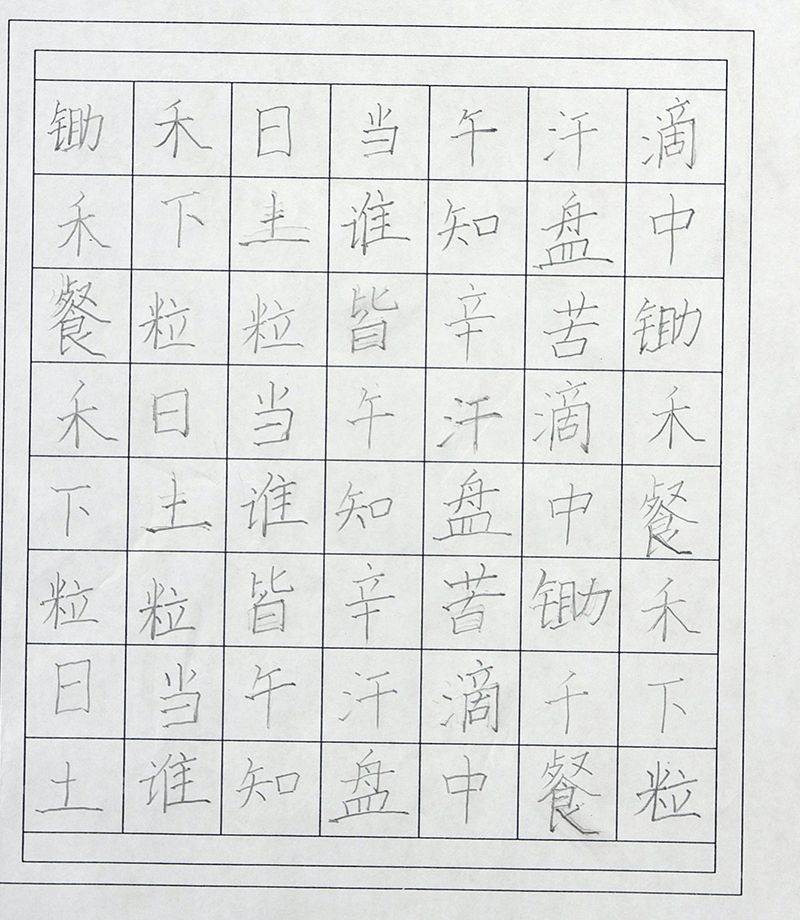 锄禾日当午汗滴
禾下土谁知盘中
餐粒粒皆辛苦锄
禾日当午汗滴禾
下土谁知盘中餐
粒粒皆辛苦锄禾
日当午汗滴千下
土谁知盘中餐粒